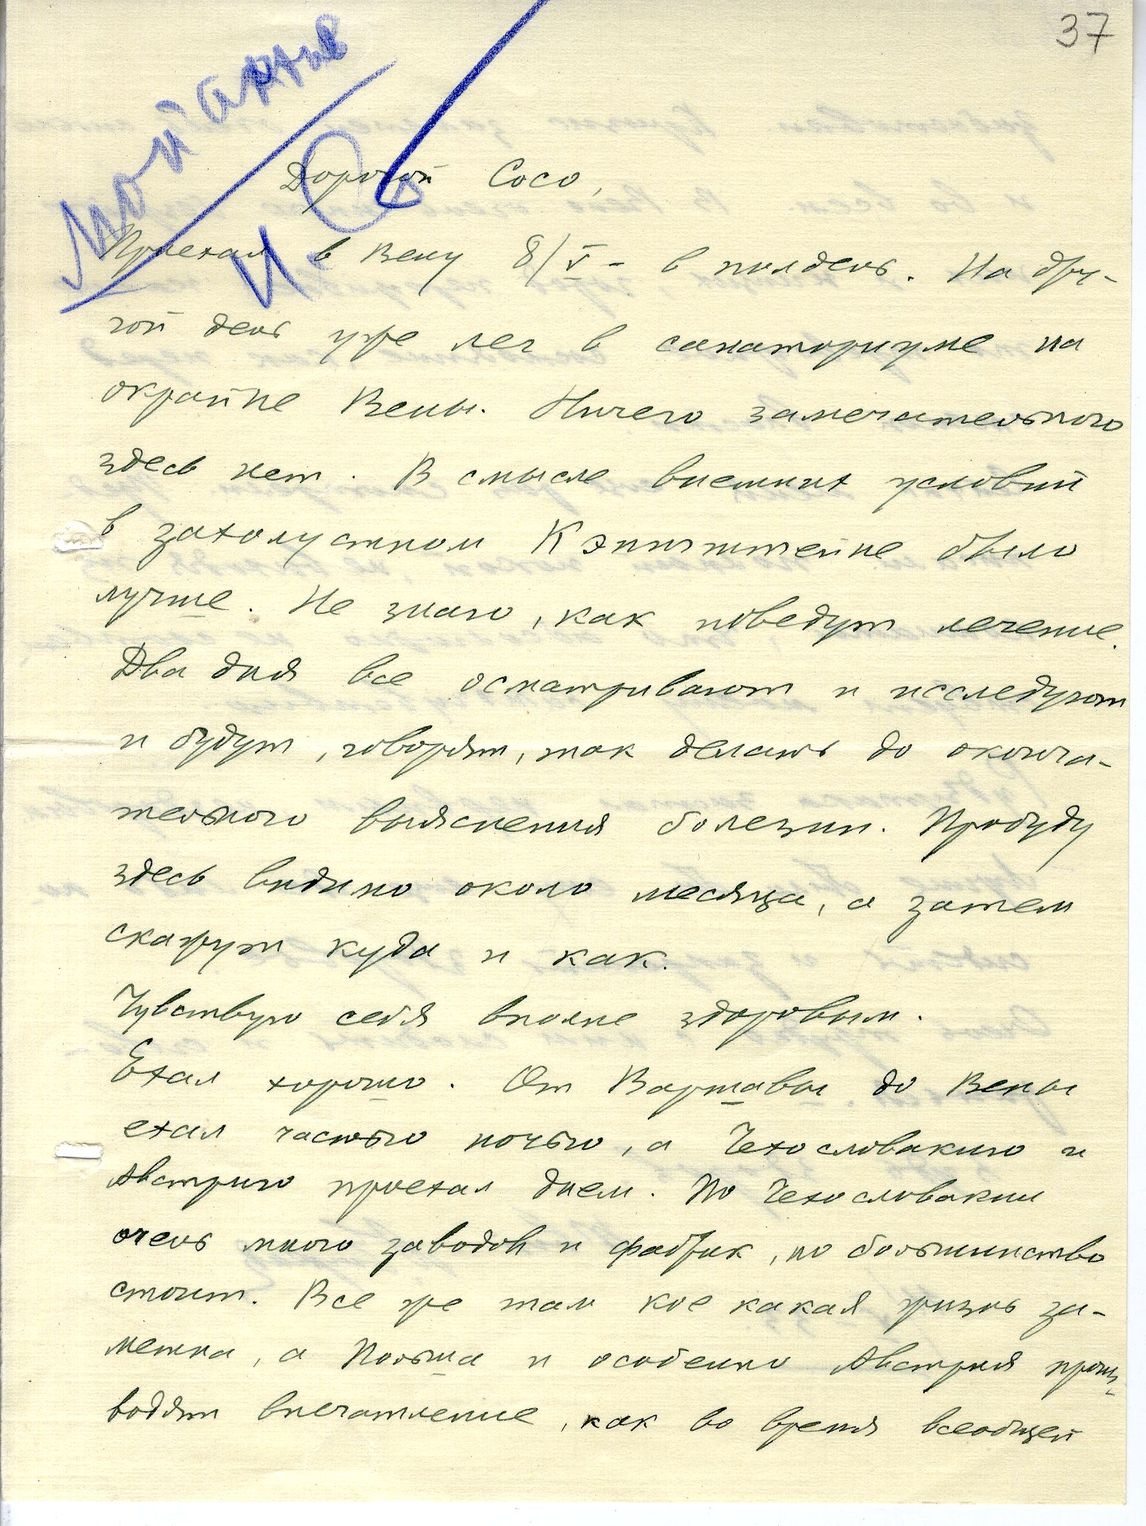 37
Мой архив
И. Ст
Дорогой Сосо,
Приехал в Вену 8/V – в полдень. На дру-
гой день уже лег в санаториуме на
окрайне Вены. Ничего замечательного
здесь нет. В смысле внешних условий
в захолустном Кэнигштейне было
лучше. Не знаю, как поведут лечение.
Два дня все осматривают и исследуют
и будут, говорят, так делать до оконча-
тельного выяснения болезни. Пробуду
здесь видимо около месяца, а затем
скажут куда и как.
Чувствую себя вполне здоровым.
Ехал хорошо. От Варшавы до Вены
ехал частью ночью, а Чехословакию и
Австрию проехал днем. По Чехословакии
очень много заводов и фабрик, но большинство
стоит. Все же там кое какая жизнь за-
метна, а Польша и особенно Австрия произ-
водят впечатление, как во время всеобщей